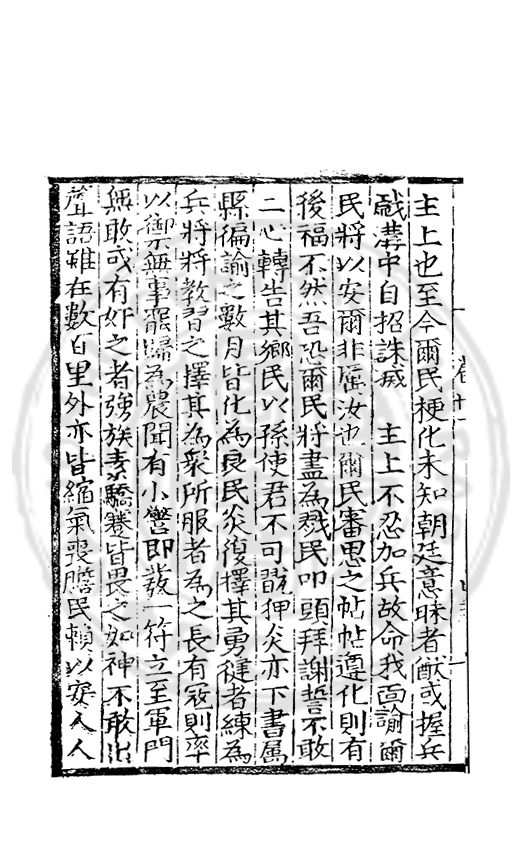 主上也至今爾民梗化未知朝廷意昧者猷或握兵
戲溝中自招誅㓕　主上不忍加兵故命我面諭爾
民將以安爾非厲汝也爾民審思之帖帖遵化則有
後福不然吾恐爾民將盡為戮民叩頭拜謝誓不敢
二心轉告其鄉民以孫使君不可翫狎炎亦下書属
縣徧諭之數月皆化為良民炎復擇其勇徤者練為
兵將將教習之擇其為衆所服者為之長有冦則率
以禦無事罷歸為農聞有小警即發一符立至軍門
無敢或有奸之者強族素驕蹇皆畏之如神不敢出
聲語雖在數百里外亦皆縮氣喪膽民賴以安人人
卷十一